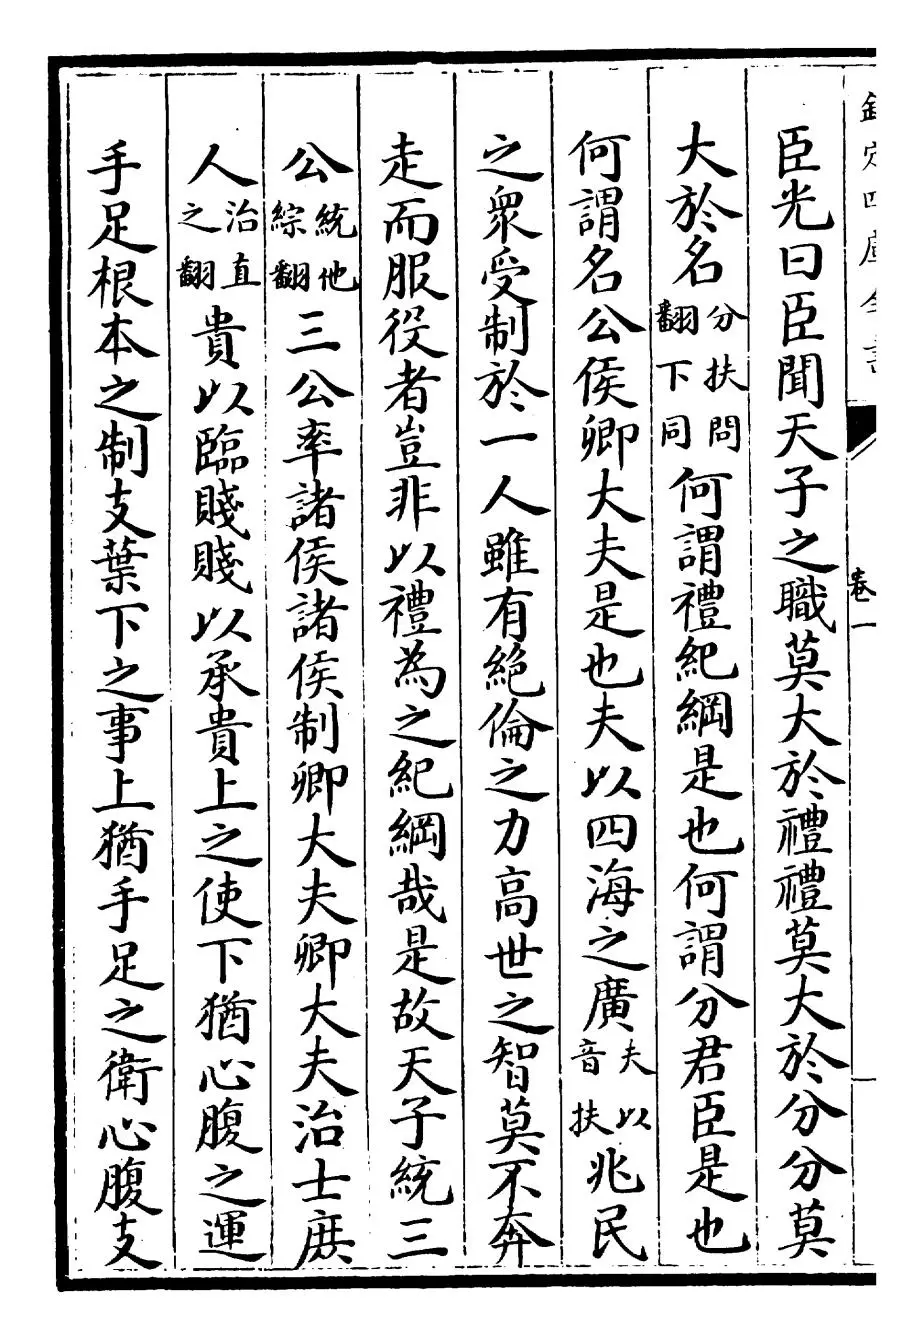 欽定四庫全書
卷一
臣光曰臣聞天子之職莫大於禮禮莫大於分分莫
大於名分扶問翻下同何謂禮紀綱是也何謂分君臣是也
何謂名公侯卿大夫是也夫以四海之廣夫以音扶兆民
之衆受制於一人雖有絶倫之力高世之智莫不奔
走而服役者豈非以禮為之紀綱哉是故天子統三
公統他綜翻三公率諸侯諸侯制卿大夫卿大夫治士庶
人治直之翻貴以臨賤賤以承貴上之使下猶心腹之運
手足根本之制支葉下之事上猶手足之衛心腹支